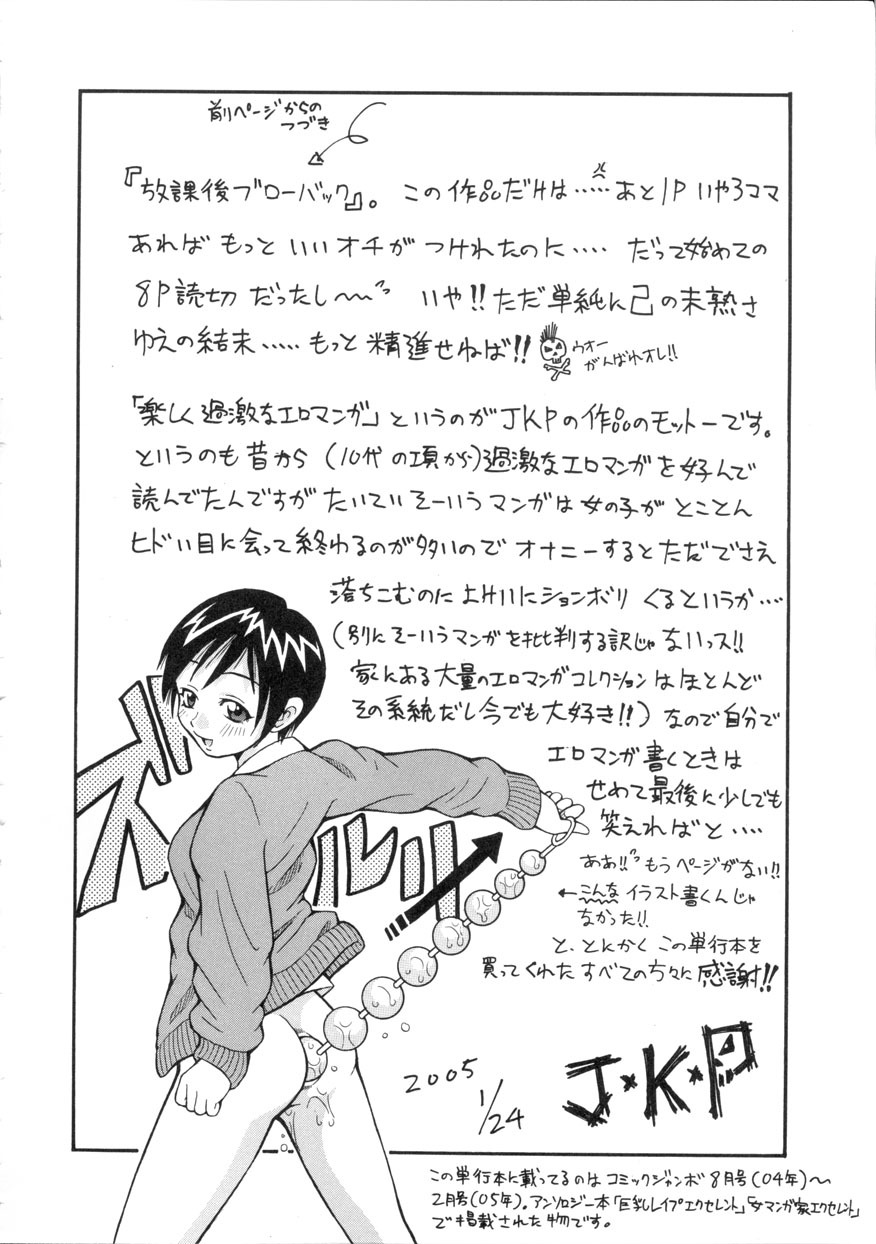 前ページからの
つづき
『放課後ブローバック』。この作品だけは……あと1Pいやろママ
あればもっといいオチがつけれたのに…. だって始めての
8P読切だったし〜〜 いや!!ただ単純に己の未熟さ
ゆえの結末…..もっと精進せねば!!
ウオー
がんばれオレ!!
「楽しく過激なエロマンガ」というのがJKPの作品のモットーです。
というのも昔から(10代の項から)過激なエロマンガを好んで
読んでたんですがたいていそーいうマンガは女の子がとことん
ヒドい目に会って終わるのが多いのでオナニーするとただでさえ
落ちこむのによけいにションボリくるというか….
(別にそーいうマンガを批判する訳じゃないっス!!
家にある大量のエロマンガコレクションはほとんど
その系統だし今でも大好き!!)なので自分で
エロマンガ書くときは
せめて最後に少しでも
笑えればと….
ああ!!もうページがない!!
←こんなイラスト書くんじゃ
なかった!!
と、とんかくこの単行本を
買ってくれたすべての方々に感謝!!
ズルルリ
2005
1/24
J・K・P
この単行本に載ってるのはコミックジャンボ8月号(04年)〜
2月号(05年)。アンソロジー本「巨乳レイプエクセレント」「女マンガ家エクセレント」
で掲載された物です。